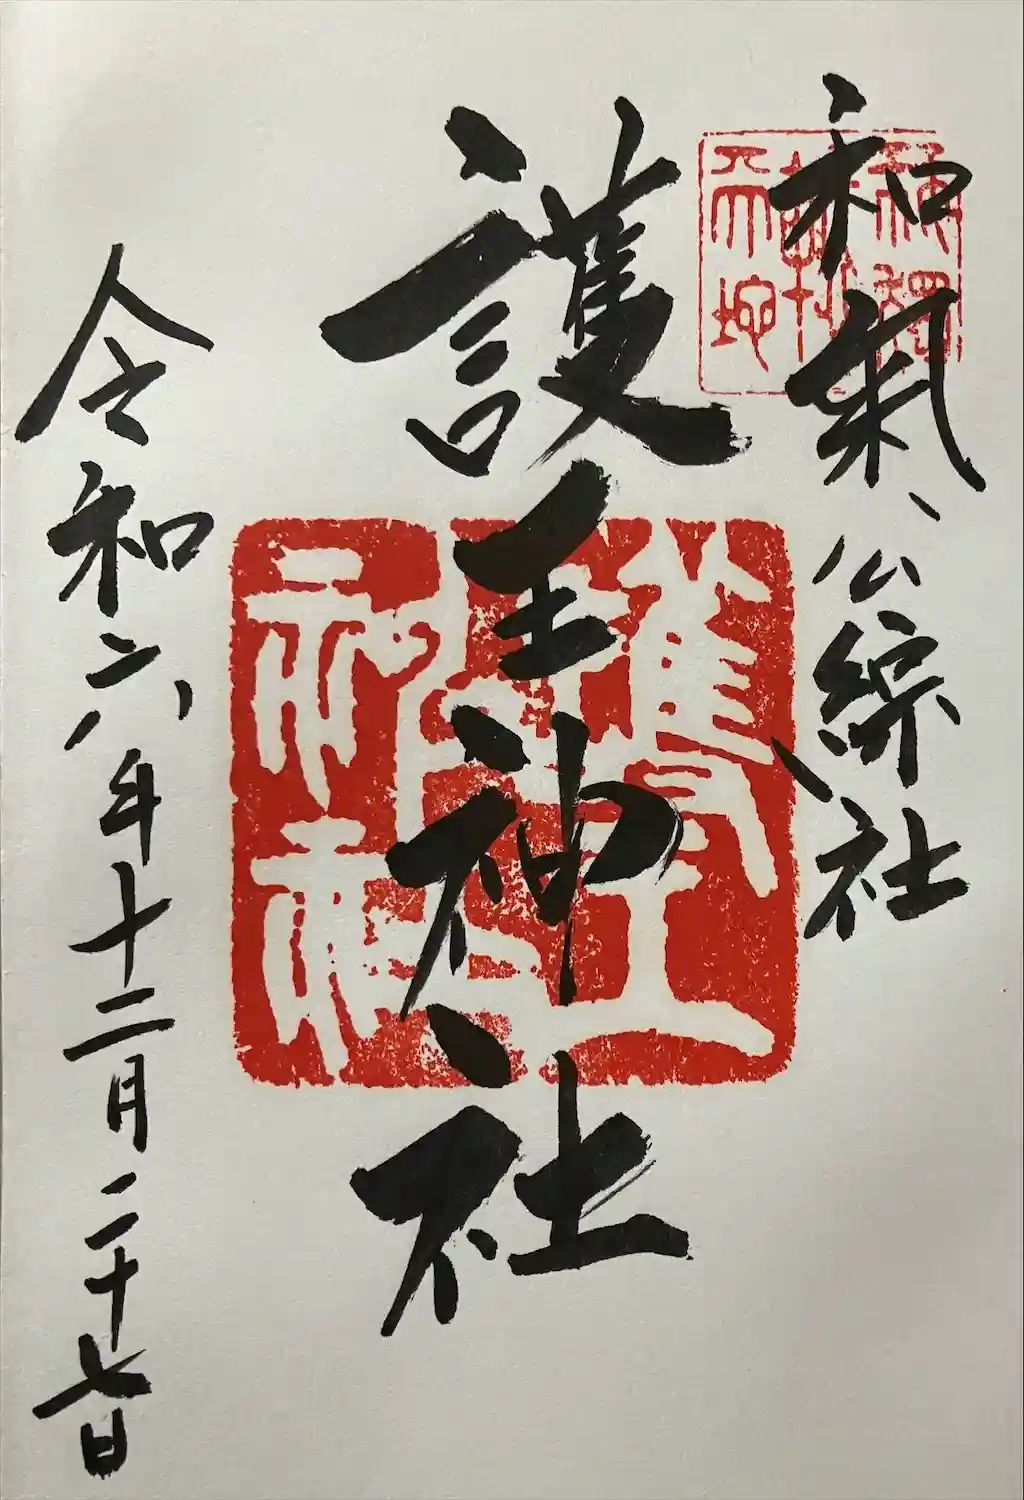 和氣公綜社
護王神社
令和六年十二月二十七日
護王神社